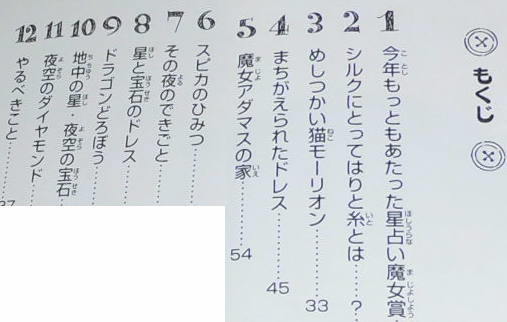 もくじ
1 今年もっともあたった星占い魔女賞
2 シルクにとってはりと糸とは……?
3 めしつかい猫モーリオン……33
4 まちがえられたドレス……45
5 魔女アダマスの家……54
6 スピカのひみつ……
7 その夜のできごと……
8 星と宝石のドレス……
9 ドラゴンどろぼう……
10 地中の星・夜空の宝石……
11 夜空のダイヤモンド……
12 やるべきこと……